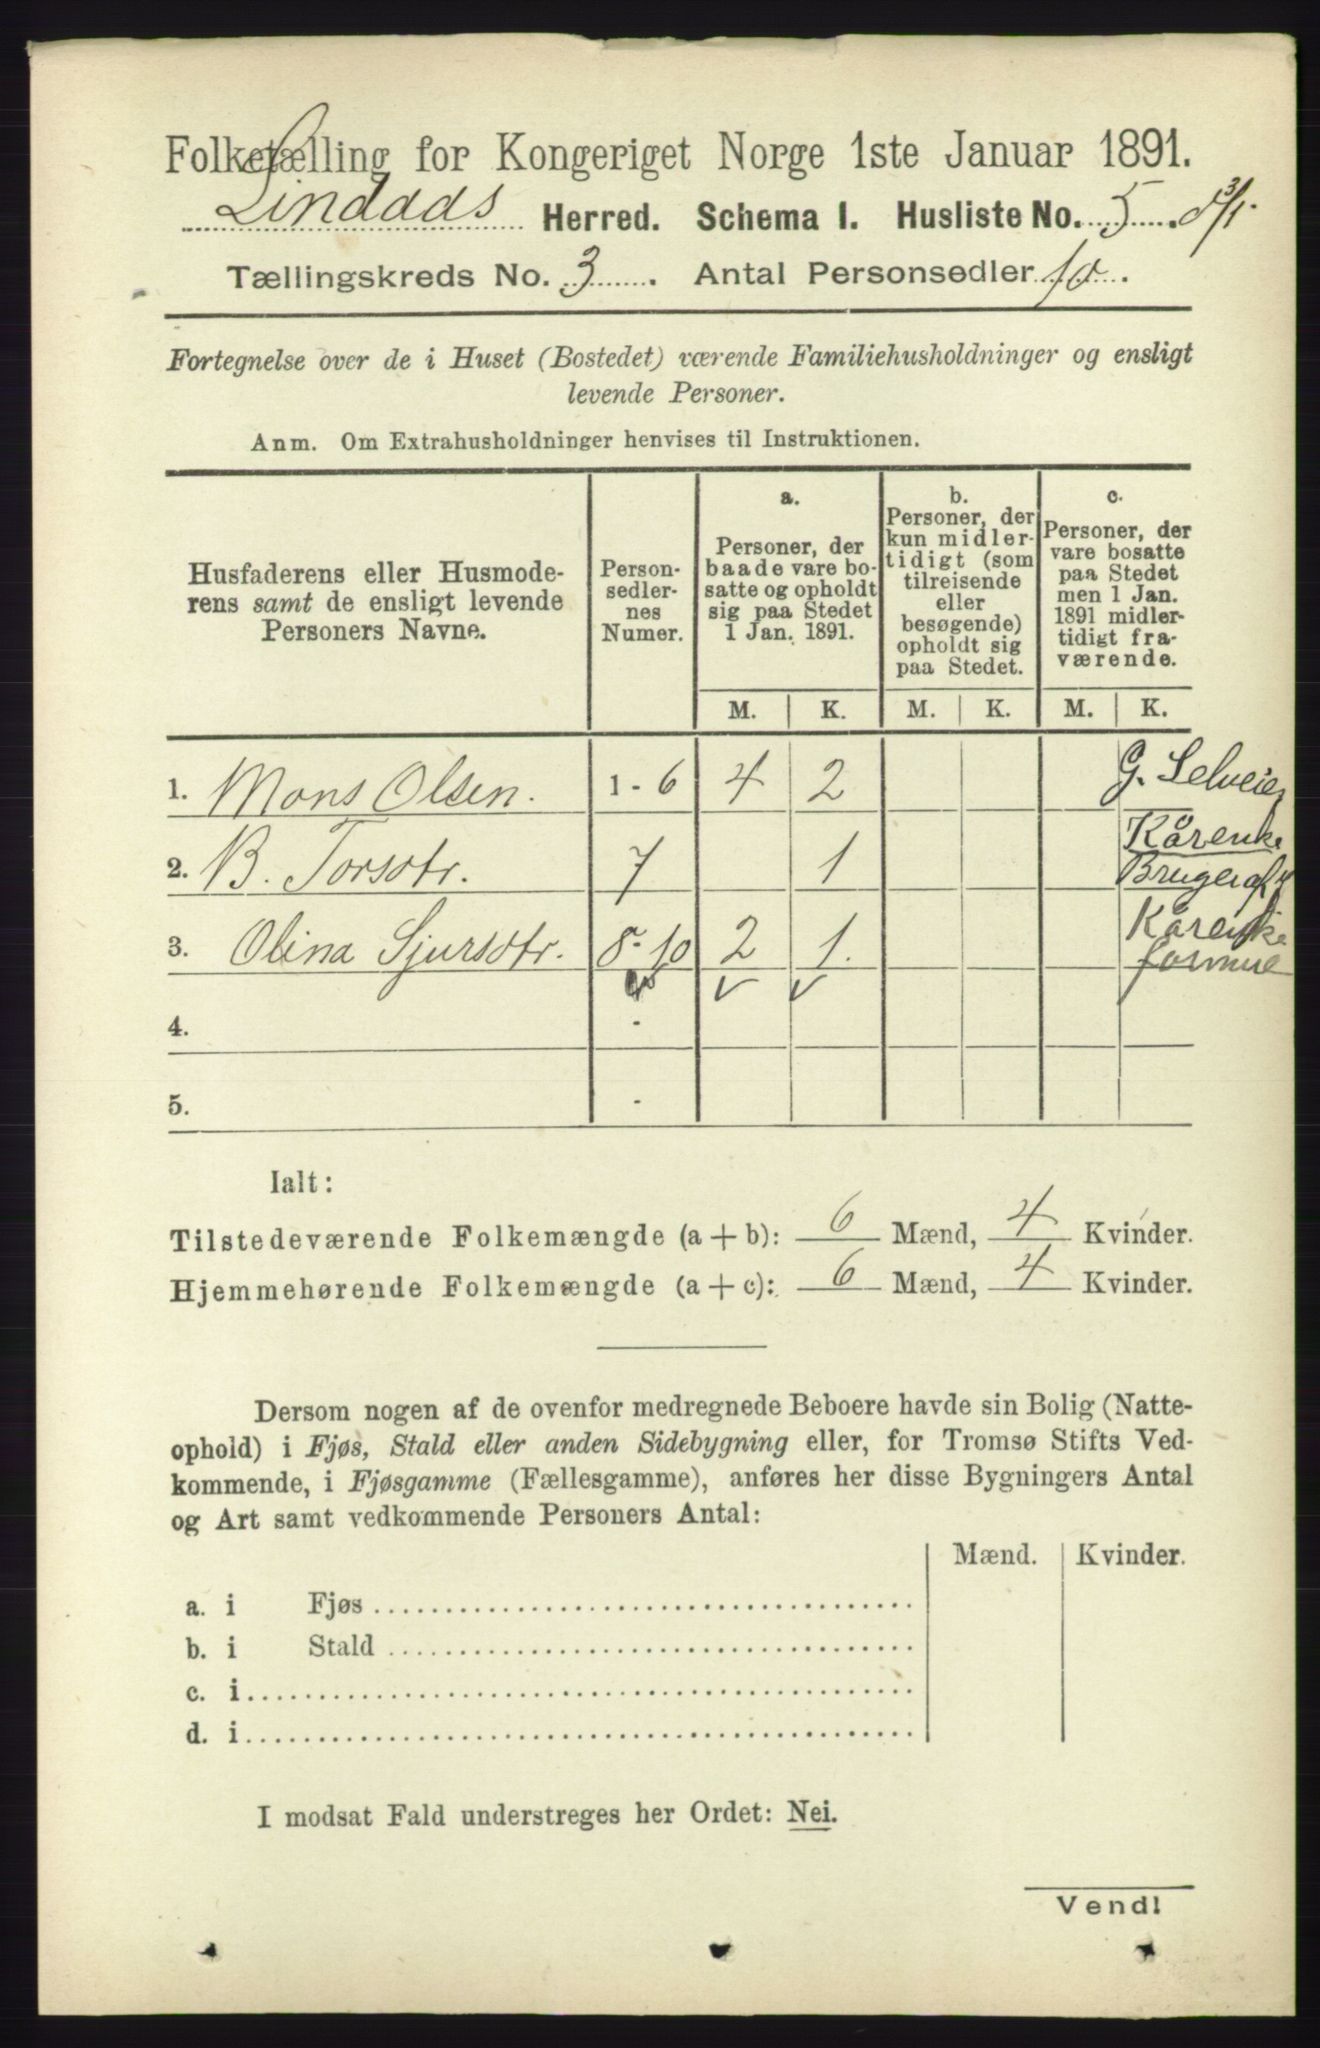 Folketælling for Kongeriget Norge 1ste Januar 1891.
Lindaas Herred. Schema I. Husliste No. 5. 3/1
Tællingskreds No. 3. Antal Personsedler 10.
Fortegnelse over de i Huset (Bostedet) værende Familiehusholdninger og ensligt
levende Personer.
Anm. Om Extrahusholdninger henvises til Instruktionen.
Husfaderens eller Husmode-
rens samt de ensligt levende
Personers Navne.
Person-
sedler-
nes
Numer.
a.
Personer, der
baade vare bo-
satte og opholdt
sig paa Stedet
1 Jan. 1891.
b.
Personer, der
kun midler-
tidigt (som
tilreisende
eller
besøgende)
opholdt sig
paa Stedet.
c.
Personer, der
vare bosatte
paa Stedet
men 1 Jan.
1891 midler-
tidigt fra-
værende.
M. K. M. K. M. K.
1. Mons Olsen. 1 - 6 4 2 G. Selveier
2. B. Torsdtr. 7 1 Kårenke
Bruger af
3. Olina Sjursdtr. 8 - 10 2 1. Kårenke
formue
4. -
5. -
Ialt:
Tilstedeværende Folkemængde (a + b): 6 Mænd, 4 Kvinder.
Hjemmehørende Folkemængde (a + c): 6 Mænd, 4 Kvinder.
Dersom nogen af de ovenfor medregnede Beboere havde sin Bolig (Natte-
ophold) i Fjøs, Stald eller anden Sidebygning eller, for Tromsø Stifts Ved-
kommende, i Fjøsgamme (Fællesgamme), anføres her disse Bygningers Antal
og Art samt vedkommende Personers Antal:
Mænd. Kvinder.
a. i Fjøs
b. i Stald
c. i
d. i
I modsat Fald understreges her Ordet: Nei.
Vend!